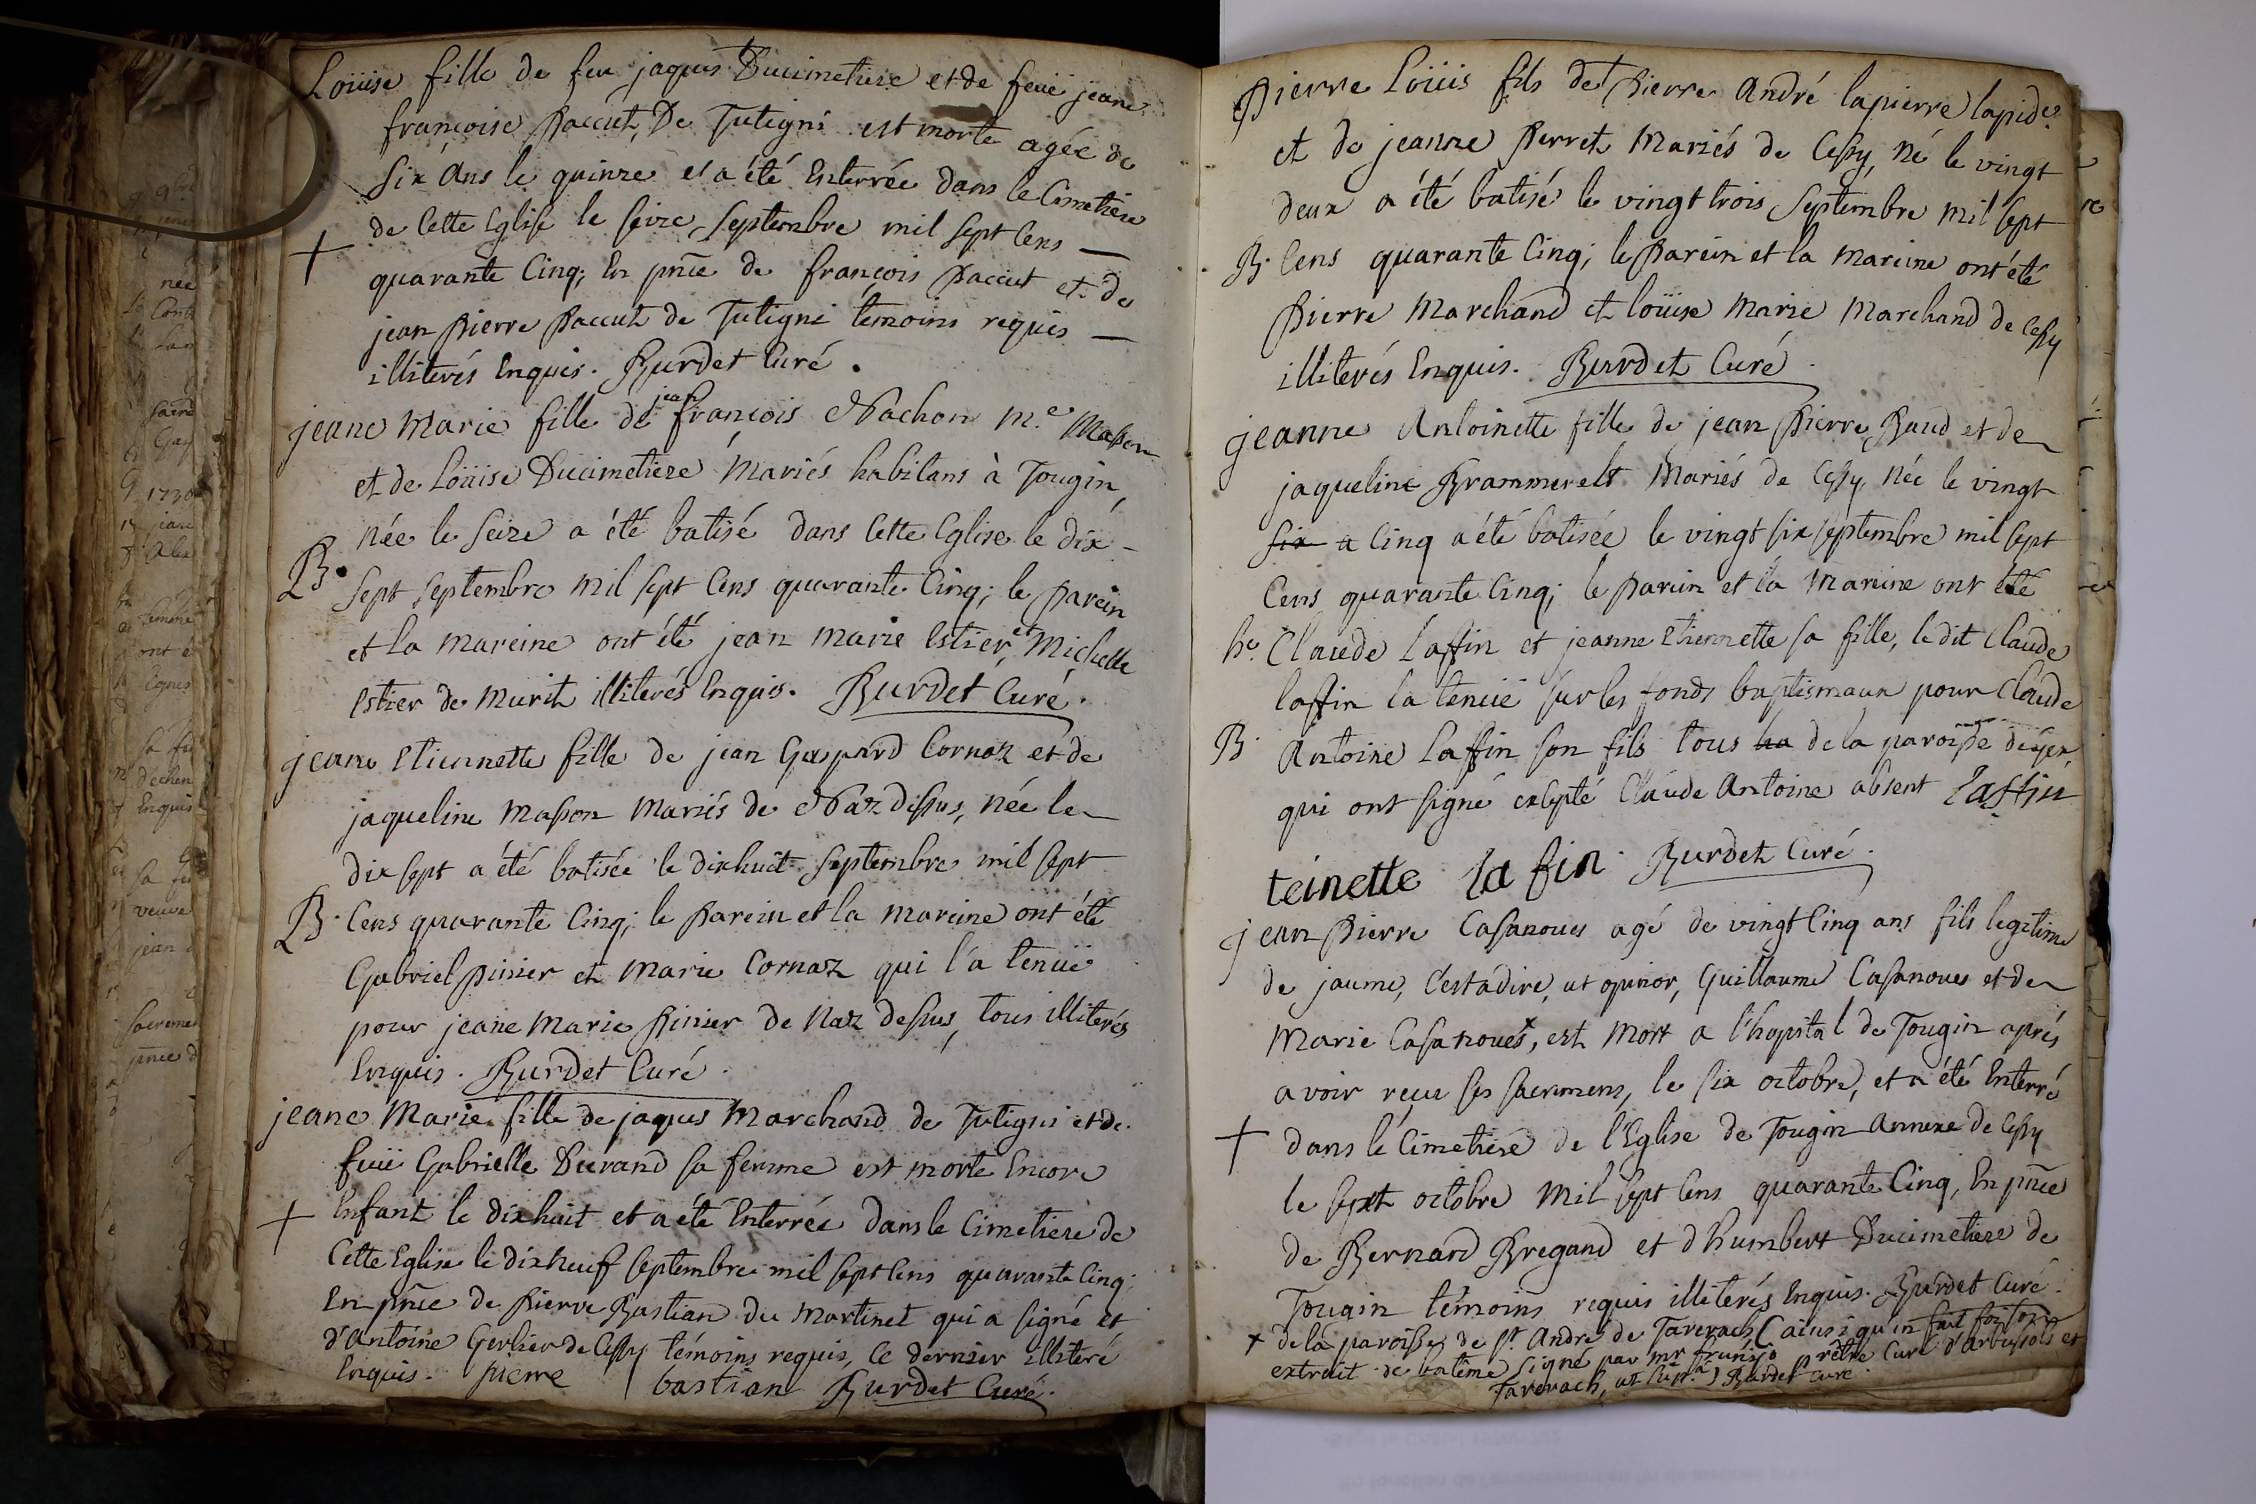 Loüise fille de feu jaques Ducimetiere et de feuë jeane
françoise Paccut, De Tutigni est morte agée de
six Ans le quinze et a été Enterrée dans le Cimetiere
de Cette Eglise le seize, septembre mil sept Cens —
+
quarante Cinq; En pñce de françois Paccut et de
jean Pierre Paccut de Tutigni temoins requis —
illiterés Enquis. Burdet Curé.
jeane Marie fille de jean françois Nachon m.e Masson
et de Loüise Ducimetiere Mariés habitans à Tougin,
née le seize a été batisé dans Cette Eglise le dix-
B.
sept septembre mil sept Cens quarante Cinq; le Parein
et la mareine ont été jean marie Estier, et Michelle
Estier de Murit illiterés Enquis. Burdet Curé.
jeane Etiennette fille de jean Gaspard Cornaz et de
jaqueline Masson Mariés de Naz dessus, née le
dix sept a été batisée le dixhuit septembre mil sept
B. Cens quarante Cinq; le Parein et la mareine ont été
Gabriel Pinier et Marie Cornaz qui l'a tenüe
pour jeane Marie Pinier de Naz dessus, tous illiterés
Enquis. Burdet Curé.
jeane Marie fille de jaques Marchand de Tutigni et de
feuë Gabrielle Durand sa femme est morte Encore
+ Enfant le dixhuit et a été Enterrée dans le Cimetiere de
Cette Eglise le dixneuf septembre mil sept Cens quarante Cinq;
En pñce de Pierre Bastian du Martinet qui a signé et
d'Antoine Gerlier de Cessy témoins requis, Ce dernier illiteré
Enquis. pierre bastian Burdet Curé.
Pierre Loüis fils de Pierre André lapierre lapid.e
et de jeanne Perret Mariés de Cessy, Né le vingt
deux a été batisé le vingt trois septembre mil sept
B. Cens quarante Cinq; le Parein et la mareine ont été
Pierre Marchand et loüise Marie Marchand de Cessy
illiterés Enquis. Burdet Curé.
jeanne Antoinette fille de jean Pierre Baud et de
jaqueline Brammerelt Mariés de Cessy, Née le vingt
six a Cinq a été batisée le vingt six septembre mil sept
Cens quarante Cinq; le Parein et la Mareine ont été
h.e Claude Laffin et jeanne Etiennette sa fille, le dit Claude
laffin la tenüe sur les fonds baptismaux pour Claude
B. Antoine Laffin son fils tous ha de la paroisse de gex,
qui ont signé excepté Claude Antoine absent Laffin
teinette la fin. Burdet Curé.
jean Pierre Casanoues agé de vingt Cinq ans fils legitime
de jaume, C'estadire, ut opinor, Guillaume Casanoues et de
Marie Casanoues+, est Mort a l'hopital de Tougin aprés
avoir reçu ses sacremens, le six octobre, et a été Enterré
+ dans le Cimetiere de l'Eglise de Tougin Annexe de Cessy
le sept octobre Mil sept Cens quarante Cinq, En pñce
de Bernard Bregand et d'humbert Ducimetiere de
Tougin témoins requis illiterés Enquis. Burdet Curé.
+ de la paroisse de St. André de Taverach (ainsi qu'en fait foi son
extrait de batême signé par mr prêtre Curé d'Arbussols et
Taverach, ut supra) Burdet Curé.